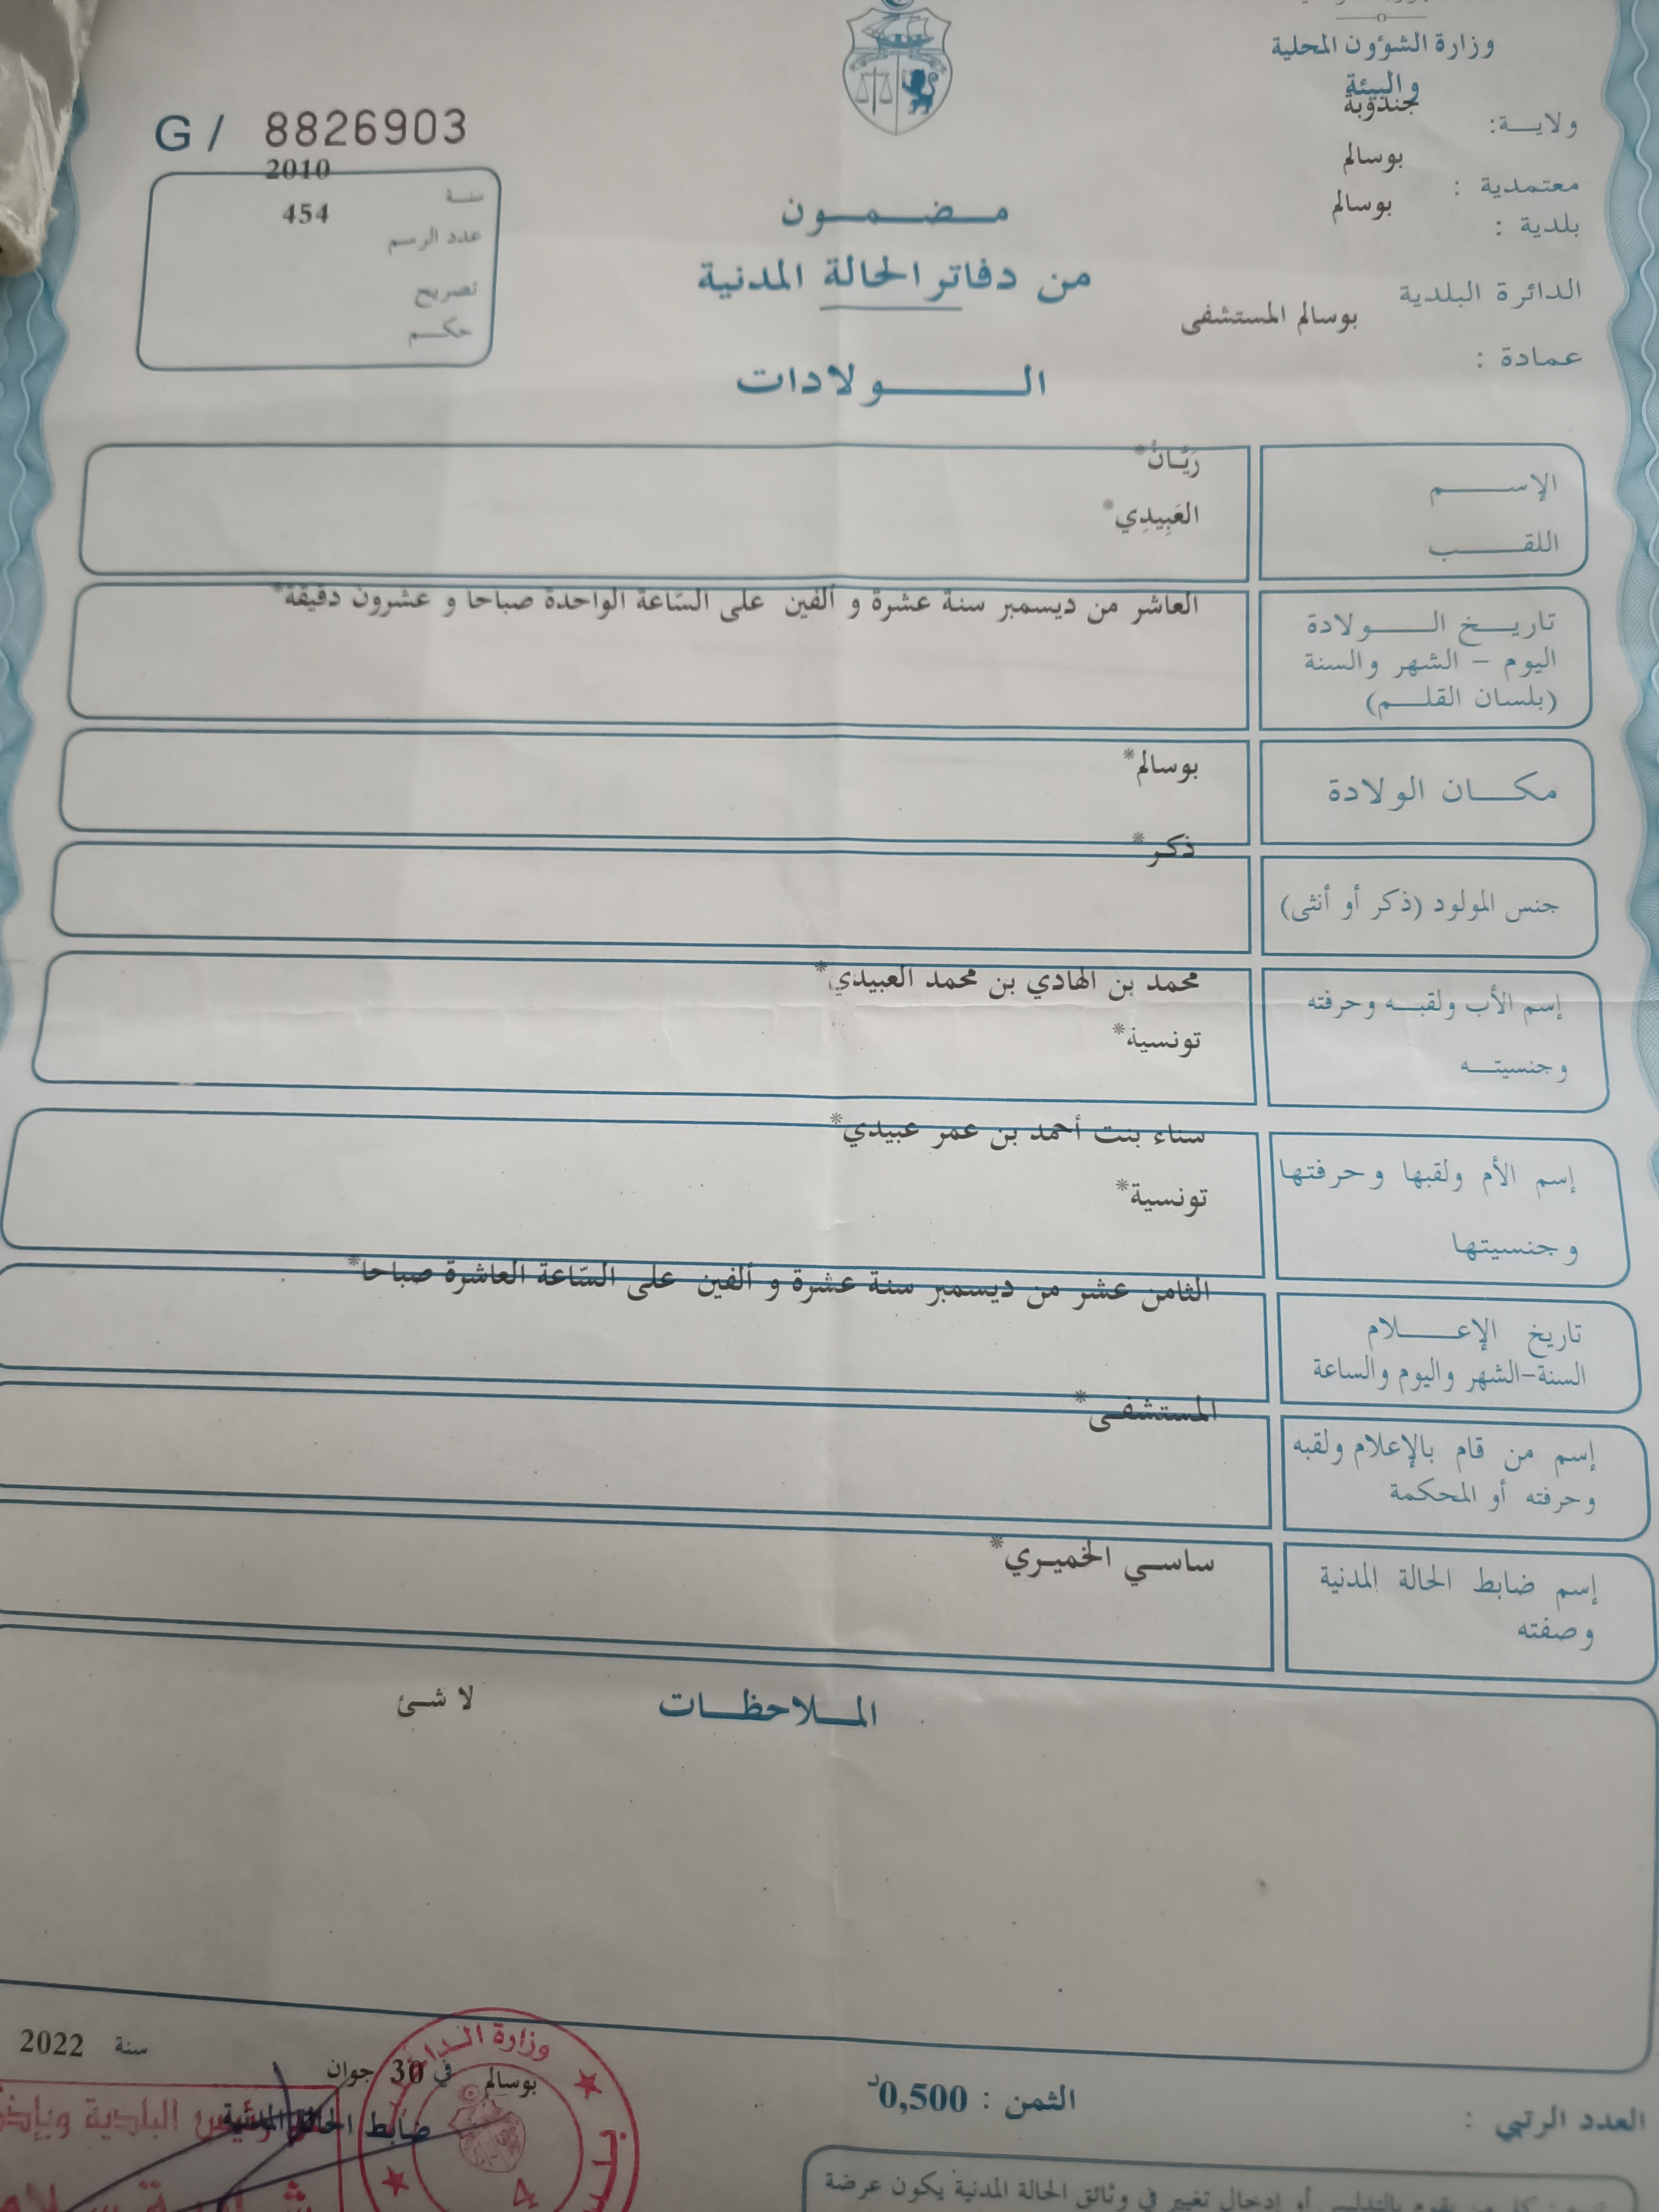 وزارة الشوؤون المحلية
والبيئة
ولايـــة: جندوبة
معتمدية : بوسالم
بلدية : بوسالم
الدائرة البلدية
بوسالم المستشفى
عمادة :
G / 8826903
سنة 2010
عدد الرسم 454
تصريح
حكم
مضمون
من دفاتر الحالة المدنية
الولادات
الإسم رَيَّانْ*
اللقب العَبِيدِي*
تاريخ الولادة
اليوم – الشهر والسنة
(بلسان القلم)
العاشر من ديسمبر سنة عشرة و ألفين على السّاعة الواحدة صباحا و عشرون دقيقة*
مكان الولادة بوسالم*
جنس المولود (ذكر أو أنثى) ذكر*
إسم الأب ولقبه وحرفته محمد بن الهادي بن محمد العبيدي*
وجنسيته تونسية*
إسم الأم ولقبها وحرفتها سناء بنت أحمد بن عمر عبيدي*
وجنسيتها تونسية*
تاريخ الإعلام
السنة-الشهر واليوم والساعة
الثامن عشر من ديسمبر سنة عشرة و ألفين على السّاعة العاشرة صباحا*
إسم من قام بالإعلام ولقبه
وحرفته أو المحكمة
المستشفى*
إسم ضابط الحالة المدنية
وصفته
ساسي الخميري*
الملاحظات لا شئ
بوسالم في 30 جوان سنة 2022
ضابط الحالة المدنية
وزارة
رئيس البلدية
4
الثمن : 0,500د
العدد الرتبي :
كل من يقوم بالتدليس أو إدخال تغيير في وثائق الحالة المدنية يكون عرضة